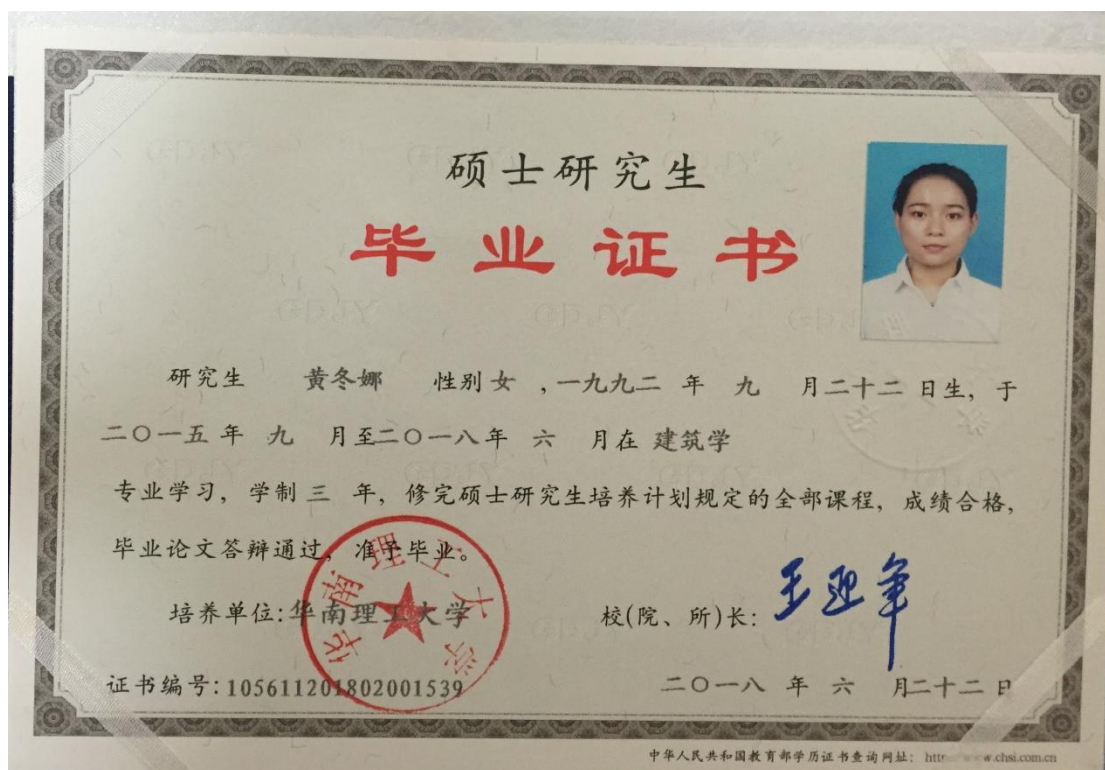 硕士研究生
毕业证书
研究生 黄冬娜 性别 女 ,一九九二 年 九 月二十二 日生, 于
二〇一五 年 九 月至二〇一八年 六 月在 建筑学
专业学习, 学制 三 年, 修完硕士研究生培养计划规定的全部课程, 成绩合格,
毕业论文答辩通过, 准予毕业。
培养单位:华南理工大学
校(院、所)长: 王迎军
华南理工大学
证书编号:105611201802001539
二〇一八 年 六 月二十二 日
中华人民共和国教育部学历证书查询网址: www.chsi.com.cn